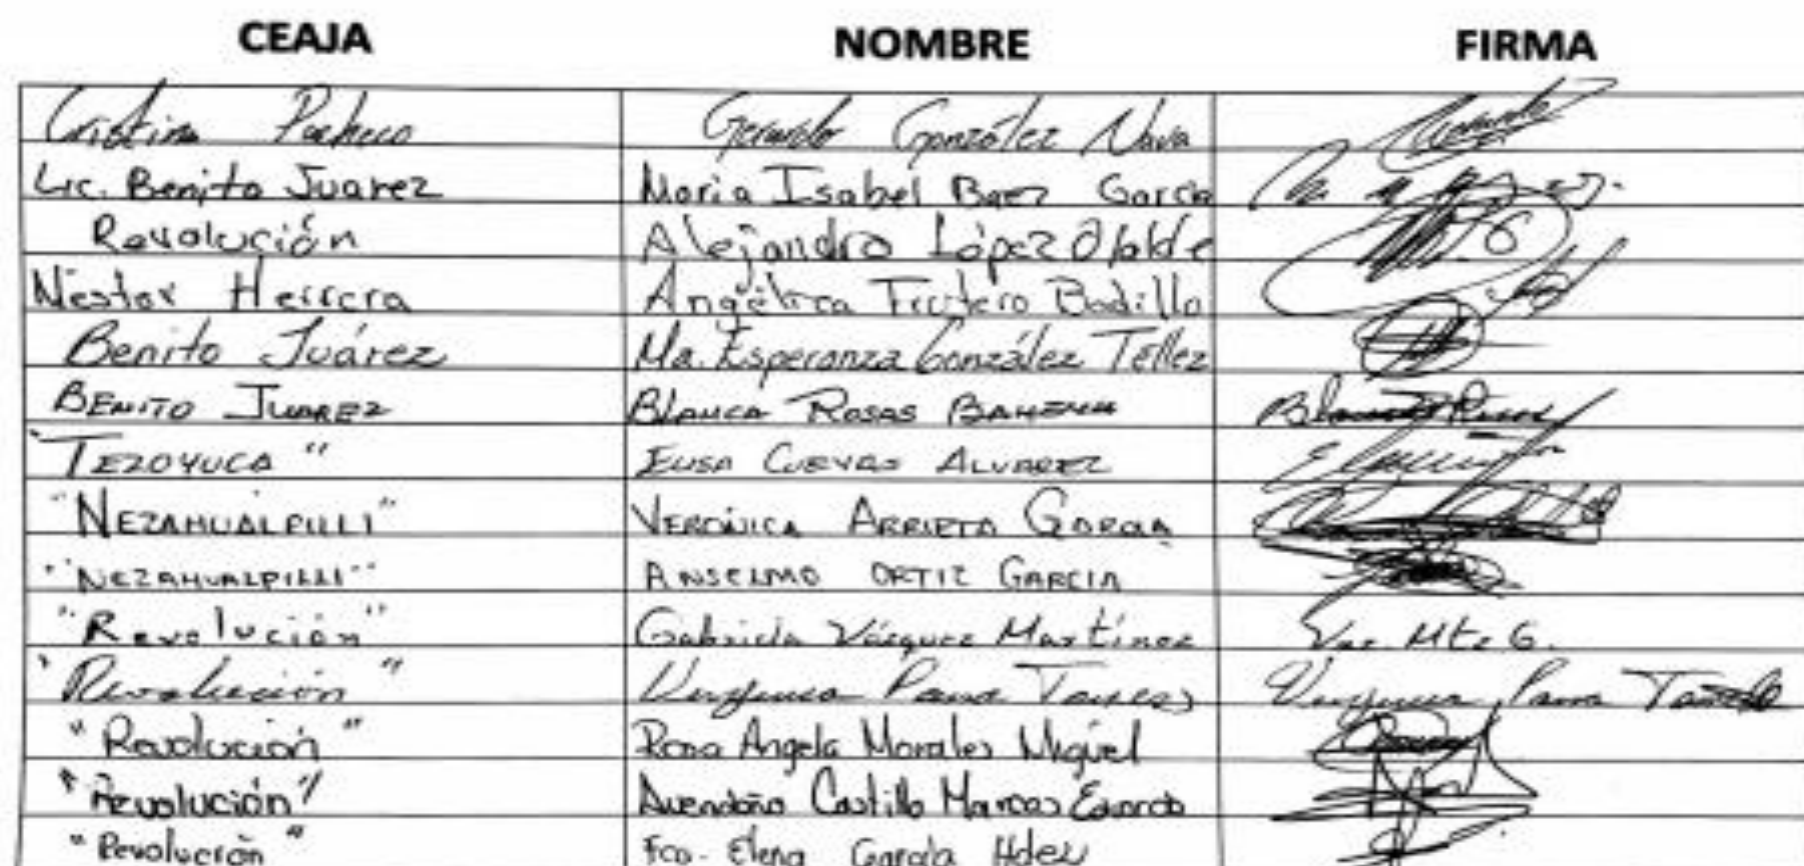 CEAJA NOMBRE FIRMA
Cristina Pacheco Gerardo González Nava
Lic. Benito Juarez Maria Isabel Baez Garcia
Revolución Alejandro López Olalde
Nestor Herrera Angélica Frutero Badillo
Benito Juárez Ma. Esperanza González Téllez
BENITO JUAREZ BLANCA ROSAS
"TEZOYUCA" ELISA CUEVAS ALVAREZ
"NEZAHUALPILLI" VERÓNICA ARRIETA GARCIA
"NEZAHUALPILLI" ANSELMO ORTIZ GARCIA
"Revolución" Gabriela Vázquez Martínez Vaz. Mtz G.
"Revolución" Virginia Parra
"Revolución" Rosa Angela Morales Miguel
"Revolución" Avendaño Castillo Marcos Eduardo
"Revolución" Fco. Elena García Hdez